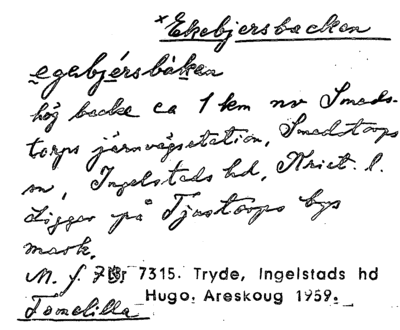 *Ekebjersbacken
egebjérsbakan
hög backe ca 1 km nv Smeds-
torps järnvägsstation, Smedstorps
sn, Ingelstads hd, Krist. l.
Ligger på Tjustorps bys
mark.
M. f. 7315. Tryde, Ingelstads hd
Hugo. Areskoug 1959.
Tomelilla